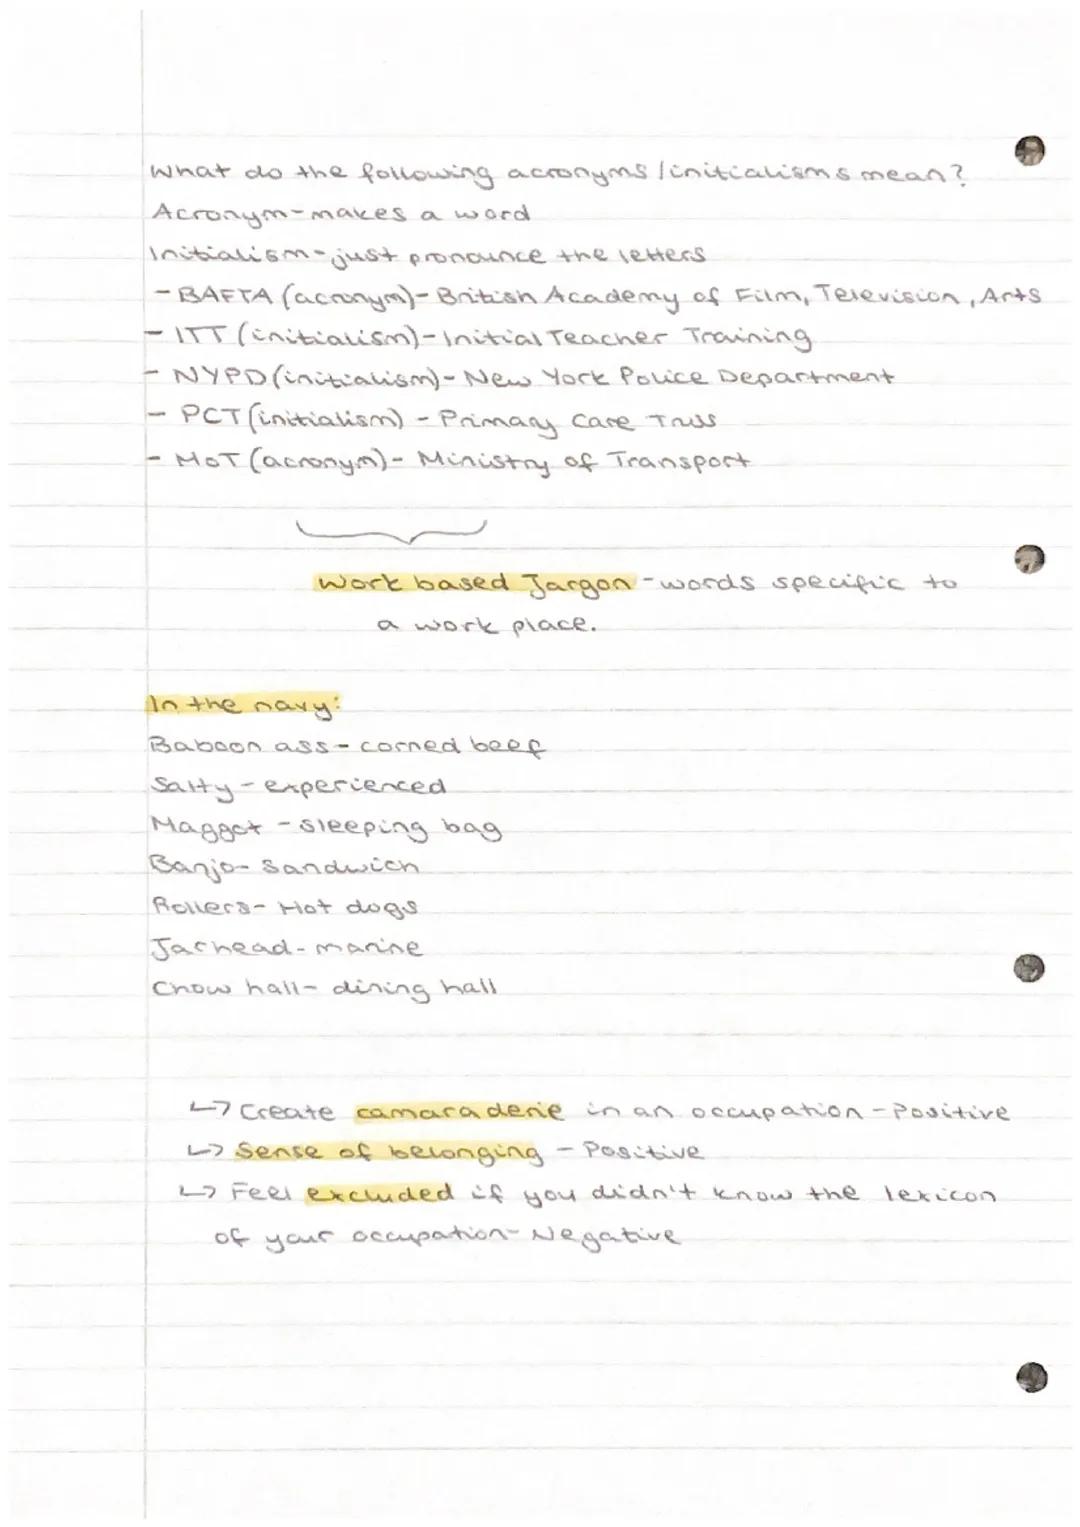 What do the following acronyms/initialisms mean?
Acronym-makes a word
Initialism-just pronounce the letters
- BAFTA (acronym)- British Academy of Film, Television, Arts
- ITT (initialism)-Initial Teacher Training
- NYPD (initialism)- New York Police Department
- PCT (initialism) - Primary Care Truss
- MoT (acronym)- Ministry of Transport
Work based Jargon - words specific to
a work place.
In the navy:
Baboon ass - corned beef
Salty - experienced
Maggot - sleeping bag
Banjo- Sandwich
Rollers- Hot dogs
Jarhead - marine
Chow hall- dining hall
↳ Create camaraderie in an occupation - Positive
↳ Sense of belonging - Positive
↳ Feel excluded if you didn't know the lexicon
of your occupation- Negative